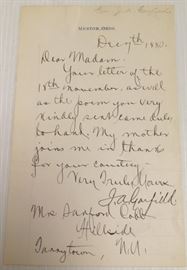 Gen. J. A. Garfield
MENTOR, OHIO.
Dec 7th 1880.
Dear Madam.
Your letter of the
18th November, as well
as the poem you very
kindly sent came duly
to hand. My mother
joins me in thanks
for your courtesy.
Very Truly Yours
J. A. Garfield
Mrs Sanford Cobb
Hillside
Tarrytown, N.Y.